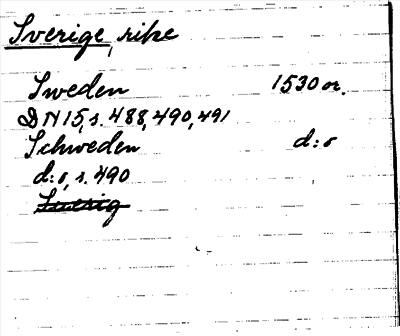 Sverige, rike
Sweden 1530 or.
DN 15, s. 488, 490, 491
Schweden d:o
d:o, s. 490
Sverig